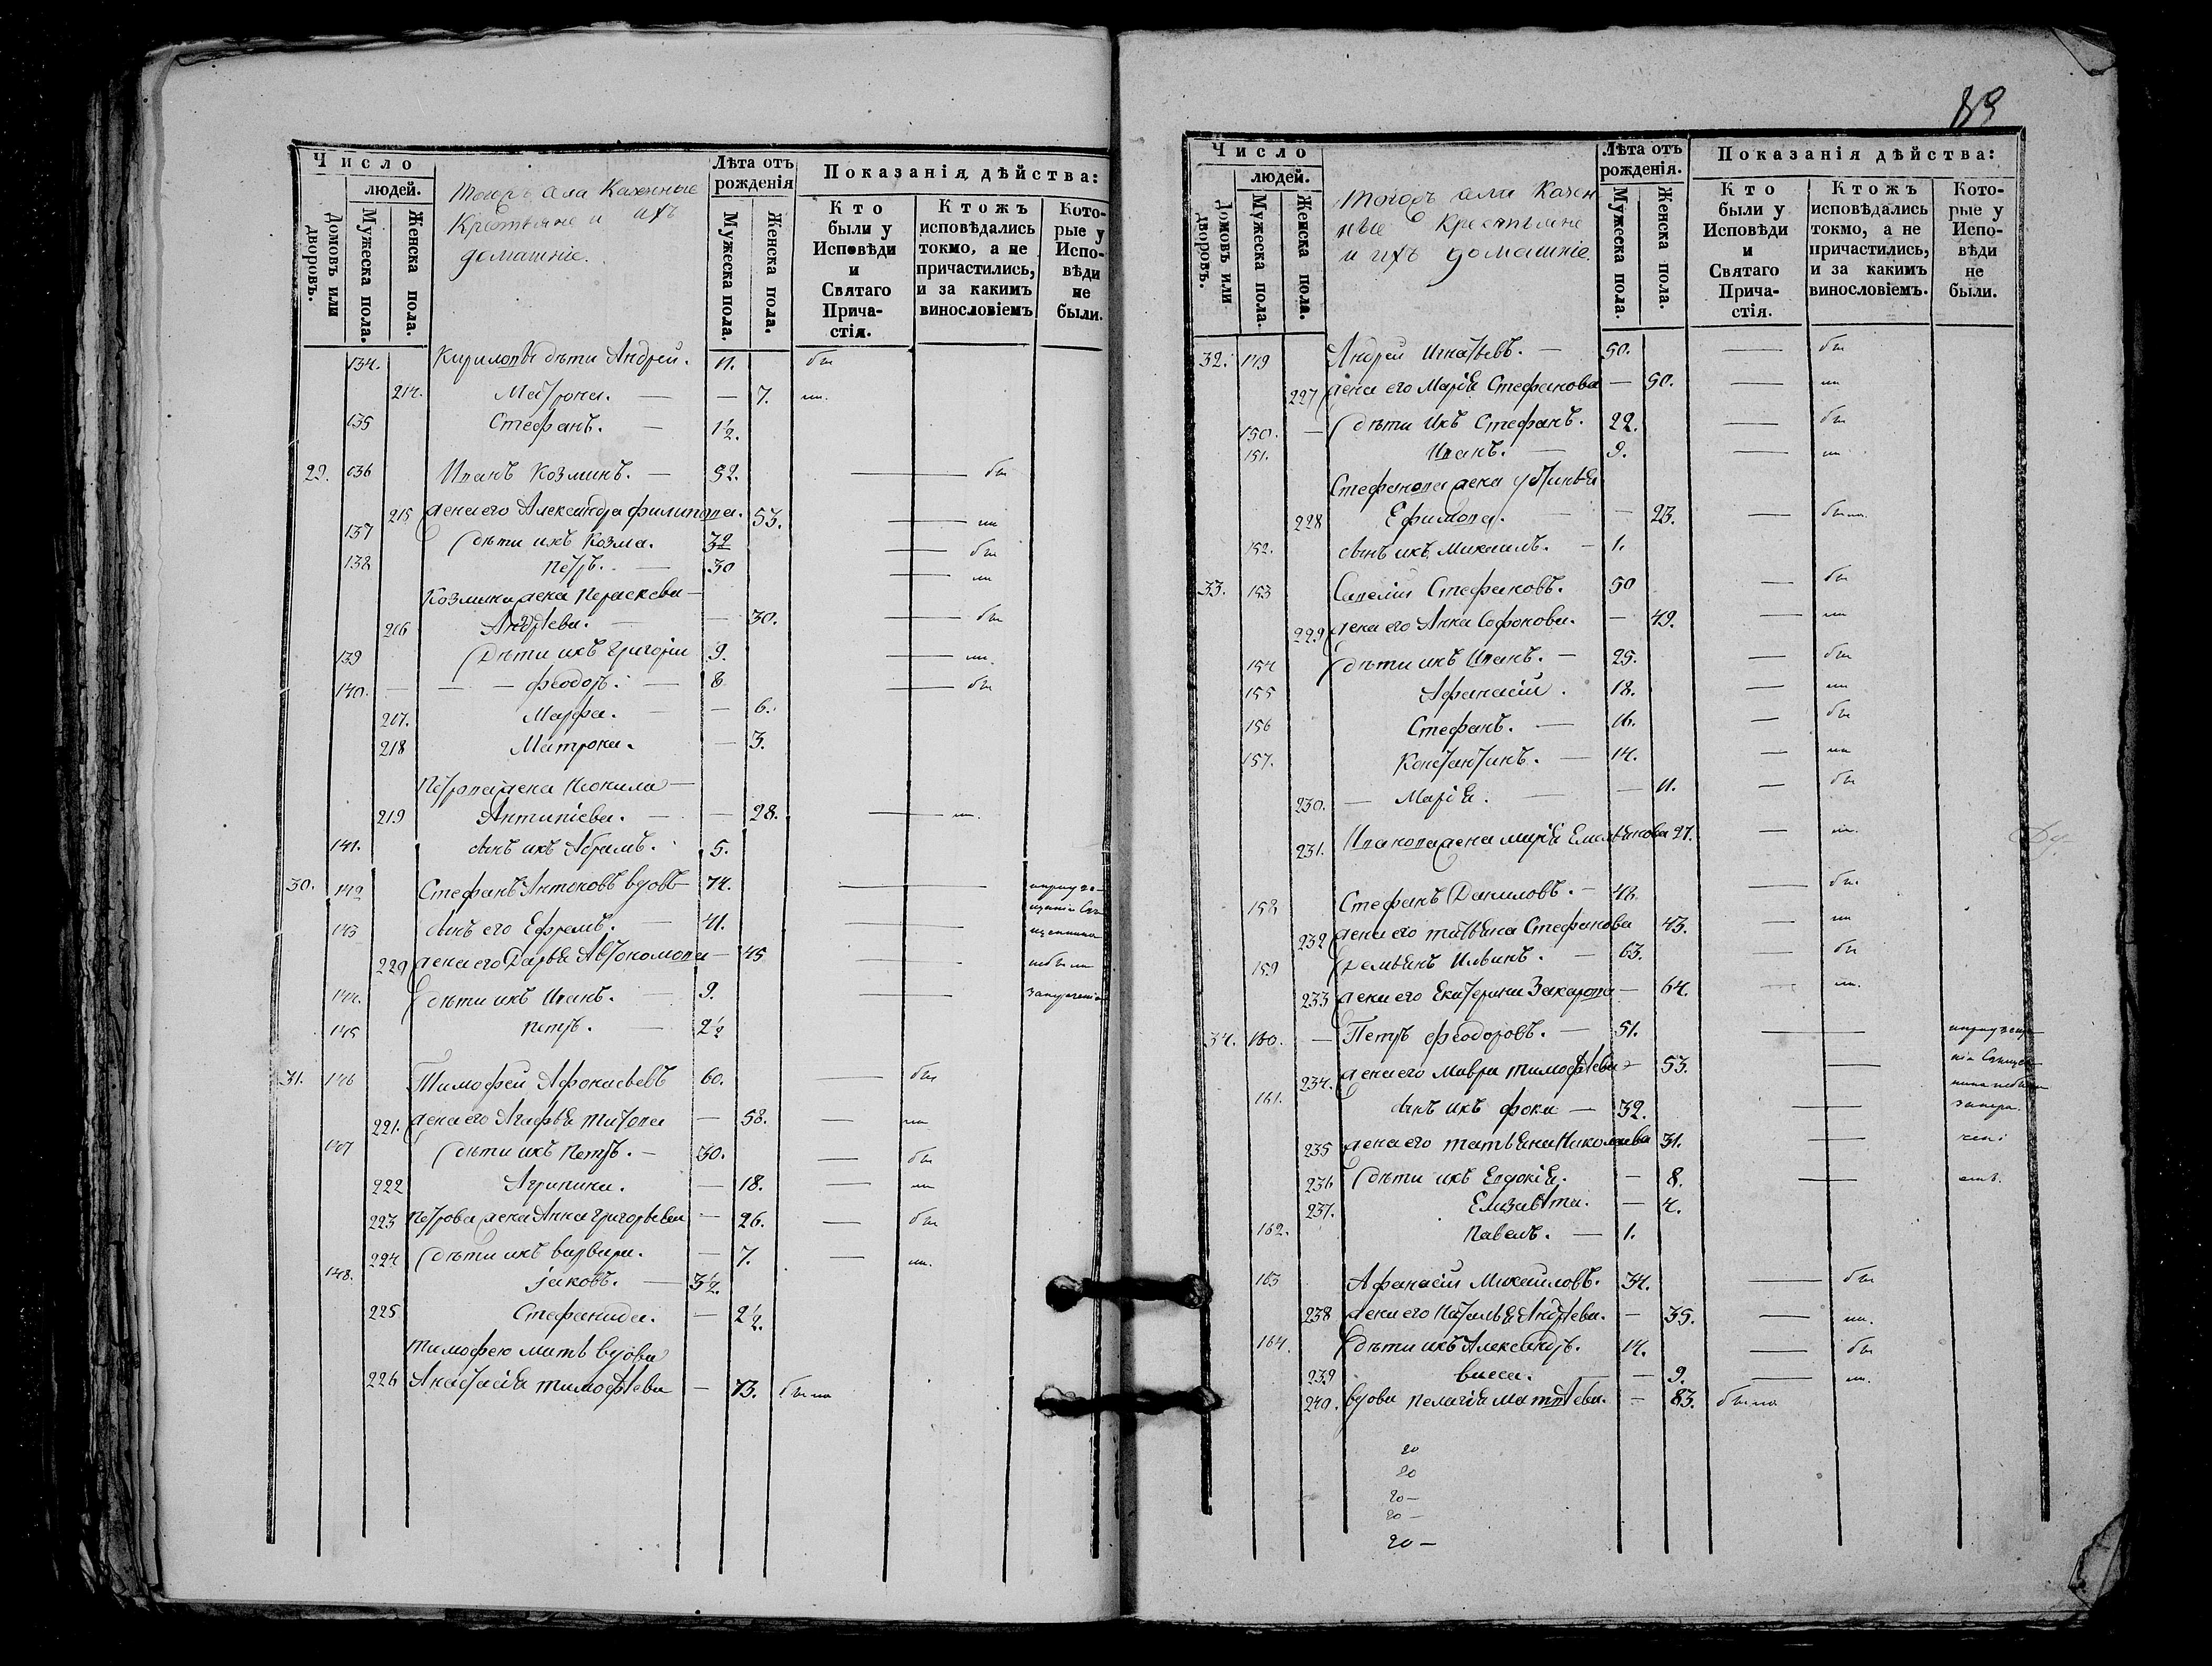 Число
людей.
Домовъ или дворовъ.
Мужеска пола.
Женска пола.
Тогожъ села Казенные
Крестьяне и ихъ
домашніе.
Лѣта отъ рожденія
Мужеска пола.
Женска пола.
Показанія дѣйства:
Кто были у Исповѣди и Святаго Причастія.
Ктожъ исповѣдались токмо, а не причастились, и за какимъ винословіемъ
Которые у Исповѣди не были.
134. Кириловы дѣти Андрей. 11. бы
214. Матрона. — — 7. ли.
135 Стефанъ. — 1½.
29. 136 Иванъ Козминъ. — 52. — бы
215 жена его Александра Филипова. 53. — ли
137 дѣти ихъ Козма. 32 — бы
138 Петръ. — 30 — ли
Козмина жена Параскева —
216 Андрѣева. — — 30. — бы
139 Дѣти ихъ Григорій 9. — ли.
140. — — — Феодоръ. — 8 — бы
217. Марфа. — — 6.
218 Матрона. — 3.
Петрова жена Неонила —
219 Антипіева. — — 28. — ли.
141. сынъ ихъ Абрамъ. 5.
30. 142 Стефанъ Антоновъ вдовъ 74. —
143 сынъ его Ефремъ. — 41. —
220 жена его Дарья Автономова — 45 — небыли
144. дѣти ихъ Иванъ. — 9. —
145 Петръ. — 2½
31. 146 Тимофей Афонасьевъ 60. — бы
221. жена его Агафья Титова — 58. — ли
147 дѣти ихъ Петръ. — 30. — бы
222 Агрипина. — 18. — ли
223 Петрова жена Анна Григорьева — 26. — бы
224 дѣти ихъ Варвара. — 7. — ли.
148. Іаковъ. — 3½.
225 Стефанида. — 2½.
Тимофею мать вдова
226 Анастасія Тимофѣева — 73. была
89
Число
людей.
Домовъ или дворовъ.
Мужеска пола.
Женска пола.
Тогожъ села Казен
ные Крестьяне
и ихъ домашніе.
Лѣта отъ рожденія.
Мужеска пола.
Женска пола.
Показанія дѣйства:
Кто были у Исповѣди и Святаго Причастія.
Ктожъ исповѣдались токмо, а не причастились, и за какимъ винословіемъ.
Которые у Исповѣди не были.
32. 149 Андрей Игнатьевъ. — 50. — бы
227 жена его Марія Стефанова — 50. — ли
150. — дѣти ихъ Стефанъ. 22. — бы
151. Иванъ. — 9. — ли
Стефанова жена Устинья
228 Ефимова. — — 23. — была
152. сынъ ихъ Михаилъ. — 1.
33. 153 Савелій Стефановъ. 50 — бы
229 жена его Анна Софонова. — 49. — ли
154 дѣти ихъ Иванъ. — 25. — бы
155 Афанасій. 18. — ли
156 Стефанъ. — 16. — бы
157. Константинъ. — 14. — ли
230. — Марія. — — 11. — бы
231. Иванова жена Марія Емельянова 27. — ли.
158 Стефанъ Даниловъ. — 48 — бы
232 жена его Татьяна Стефанова 43. — ли
159 Демьянъ Ильинъ. — 63. — бы
233 жена его Екатерина Захарова — 64. — ли.
34. 160. — Петръ Феодоровъ. — 51. —
234. жена его Мавра Тимофѣева — 53. —
161. сынъ ихъ Фока — 32. —
235 жена его Татьяна Николаева 31. —
236 дѣти ихъ Евдокія. — 8. —
237. Елизавѣта. — 4.
162. Павелъ. — 1.
163 Афанасій Михаиловъ. 34. — бы
238 жена его Наталья Андрѣева. — 35. — ли.
164. дѣти ихъ Александръ. 14. — бы
239 Васса. — 9. — ли.
240. вдова Пелагія Матвѣева. — 83. была
20
20
20 —
20 —
20 —